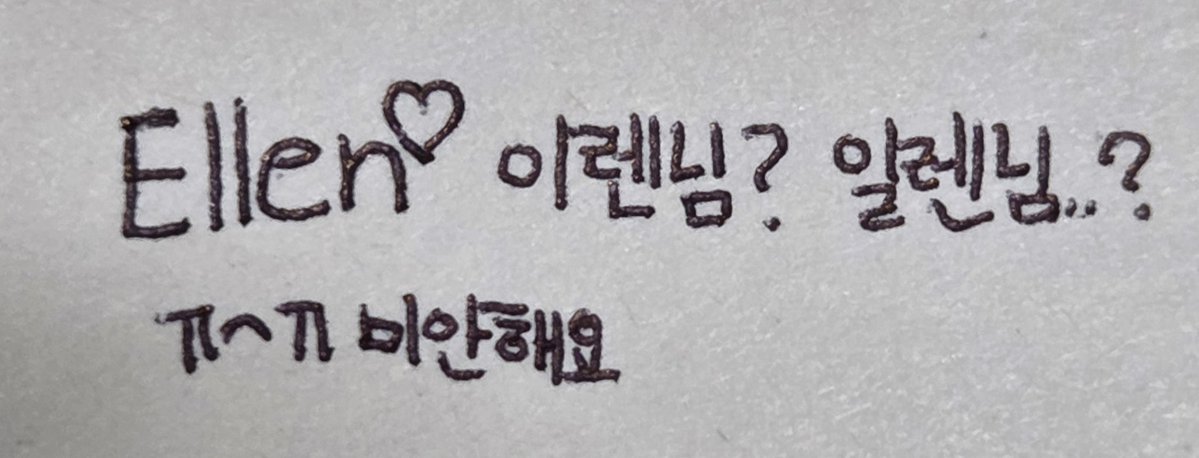 Ellen♡ 이렌님? 일렌님..?
ㅠ^ㅠ 미안해요